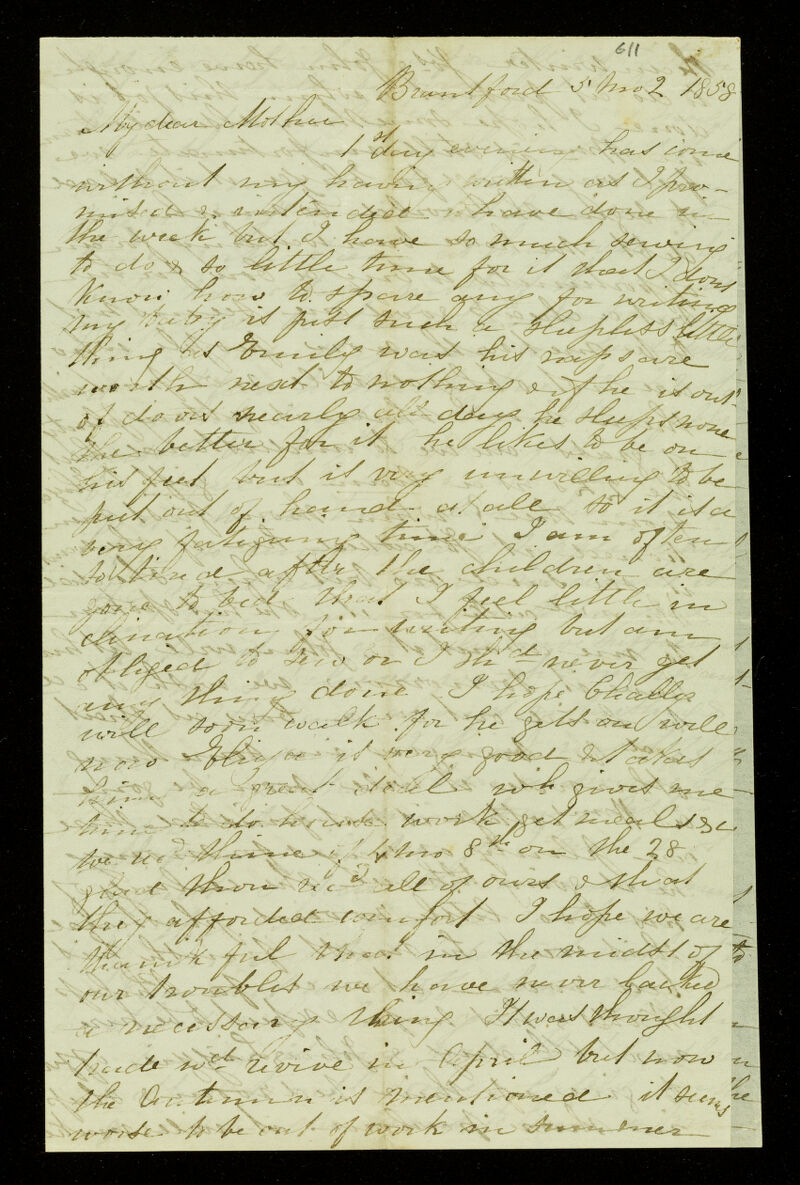 611
Brantford 5 mo 2 1858
My dear Mother
1st day evening has come
without my having written as I pro-
mised & intended to have done in
the week but I have so much sewing
to do & so little time for it that I dont
know how to spare any for writing
my baby is just such a sleepless little
thing as Emily was his naps are
worth next to nothing & if he is out
of doors nearly all day he sleeps none
the better for it he likes to be on
his feet but is very unwilling to be
put out of hand at all so it is a
very fatiguing time I am often
so tired after the children are
gone to bed that I feel little in
clination for writing but am
obliged to sew or I shd never get
any thing done I hope Charley
will soon walk for he gets on well
now Eliza is very good & takes
him a great deal wh gives me
time to do house work get meals &c
we recd thine of 4 mo 8th on the 28
glad thou recd all of ours & that
they afforded comfort I hope we are
thankful that in the midst of
our troubles we have never lacked
a necessary thing It was thought
trade wd revive in April but now
the Autumn is mentioned it seems
worse to be out of work in summer